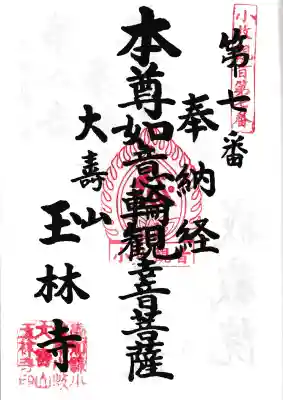 第七番
奉納経
本尊如意輪觀音菩薩
大壽山
玉林寺